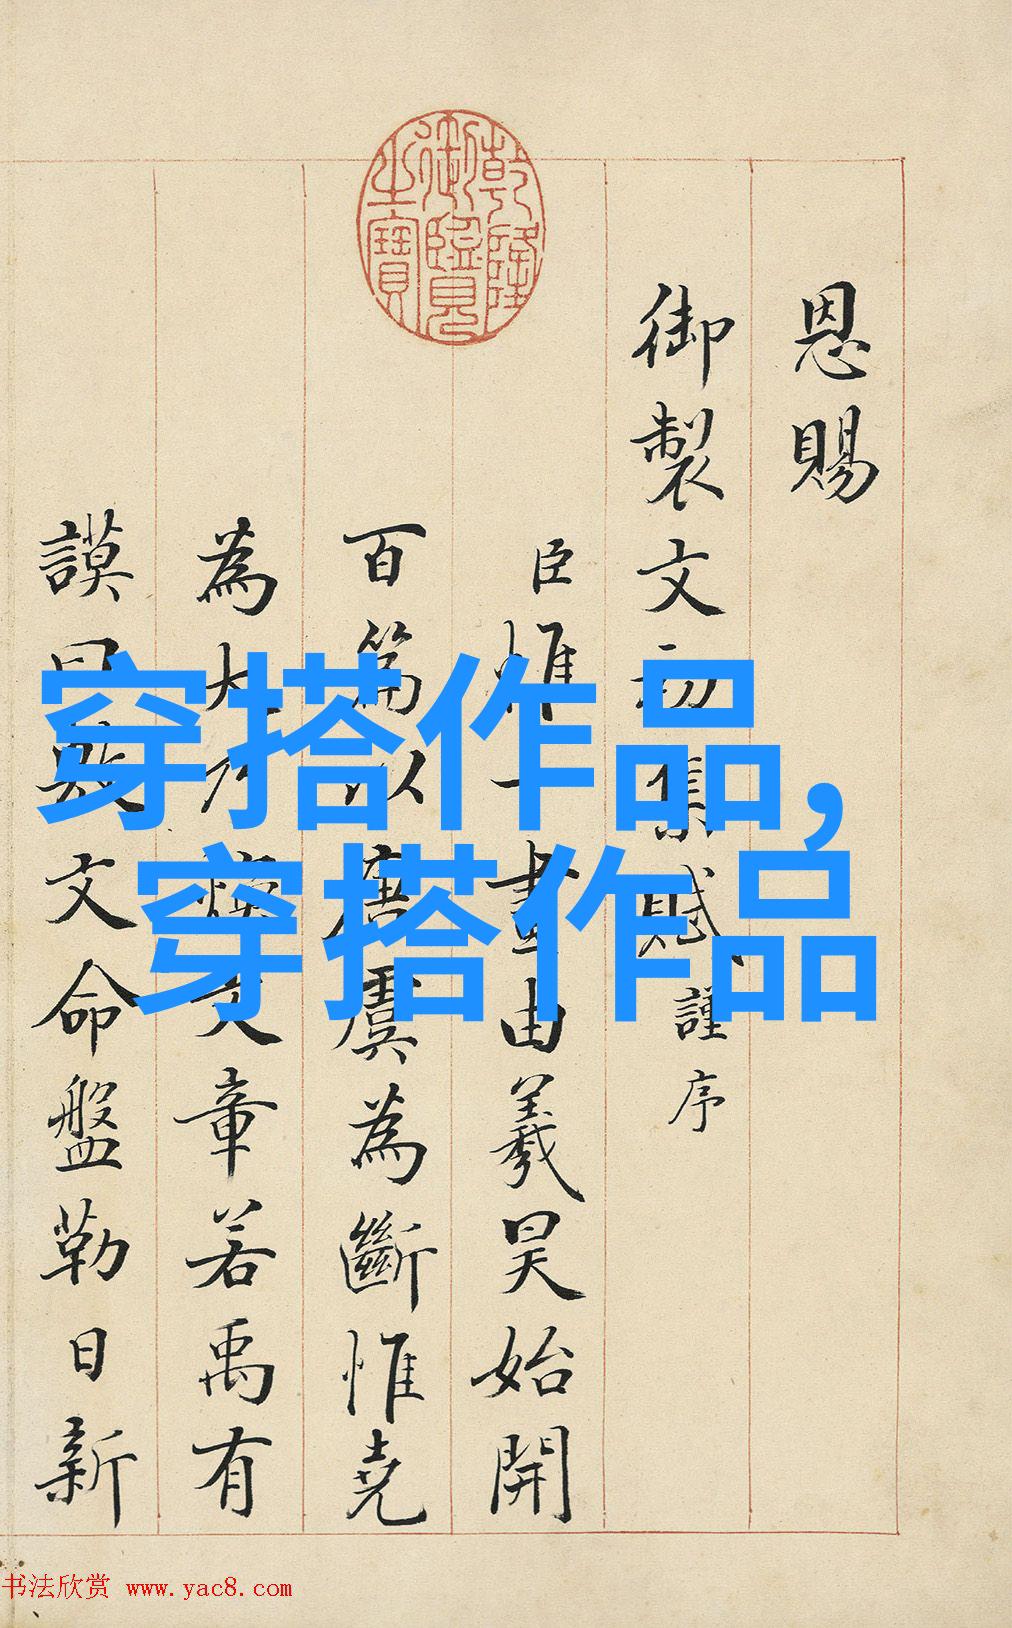 恩賜
御製文初集賦謹序
臣惟一畫由羲昊始開
百篇以唐虞為斷惟堯
為大乃煥文章若禹有
謨曰敷文命盤勒日新
乾隆
御覽
之寶
穿搭作品,
穿搭作品
书法欣赏 www.yac8.com